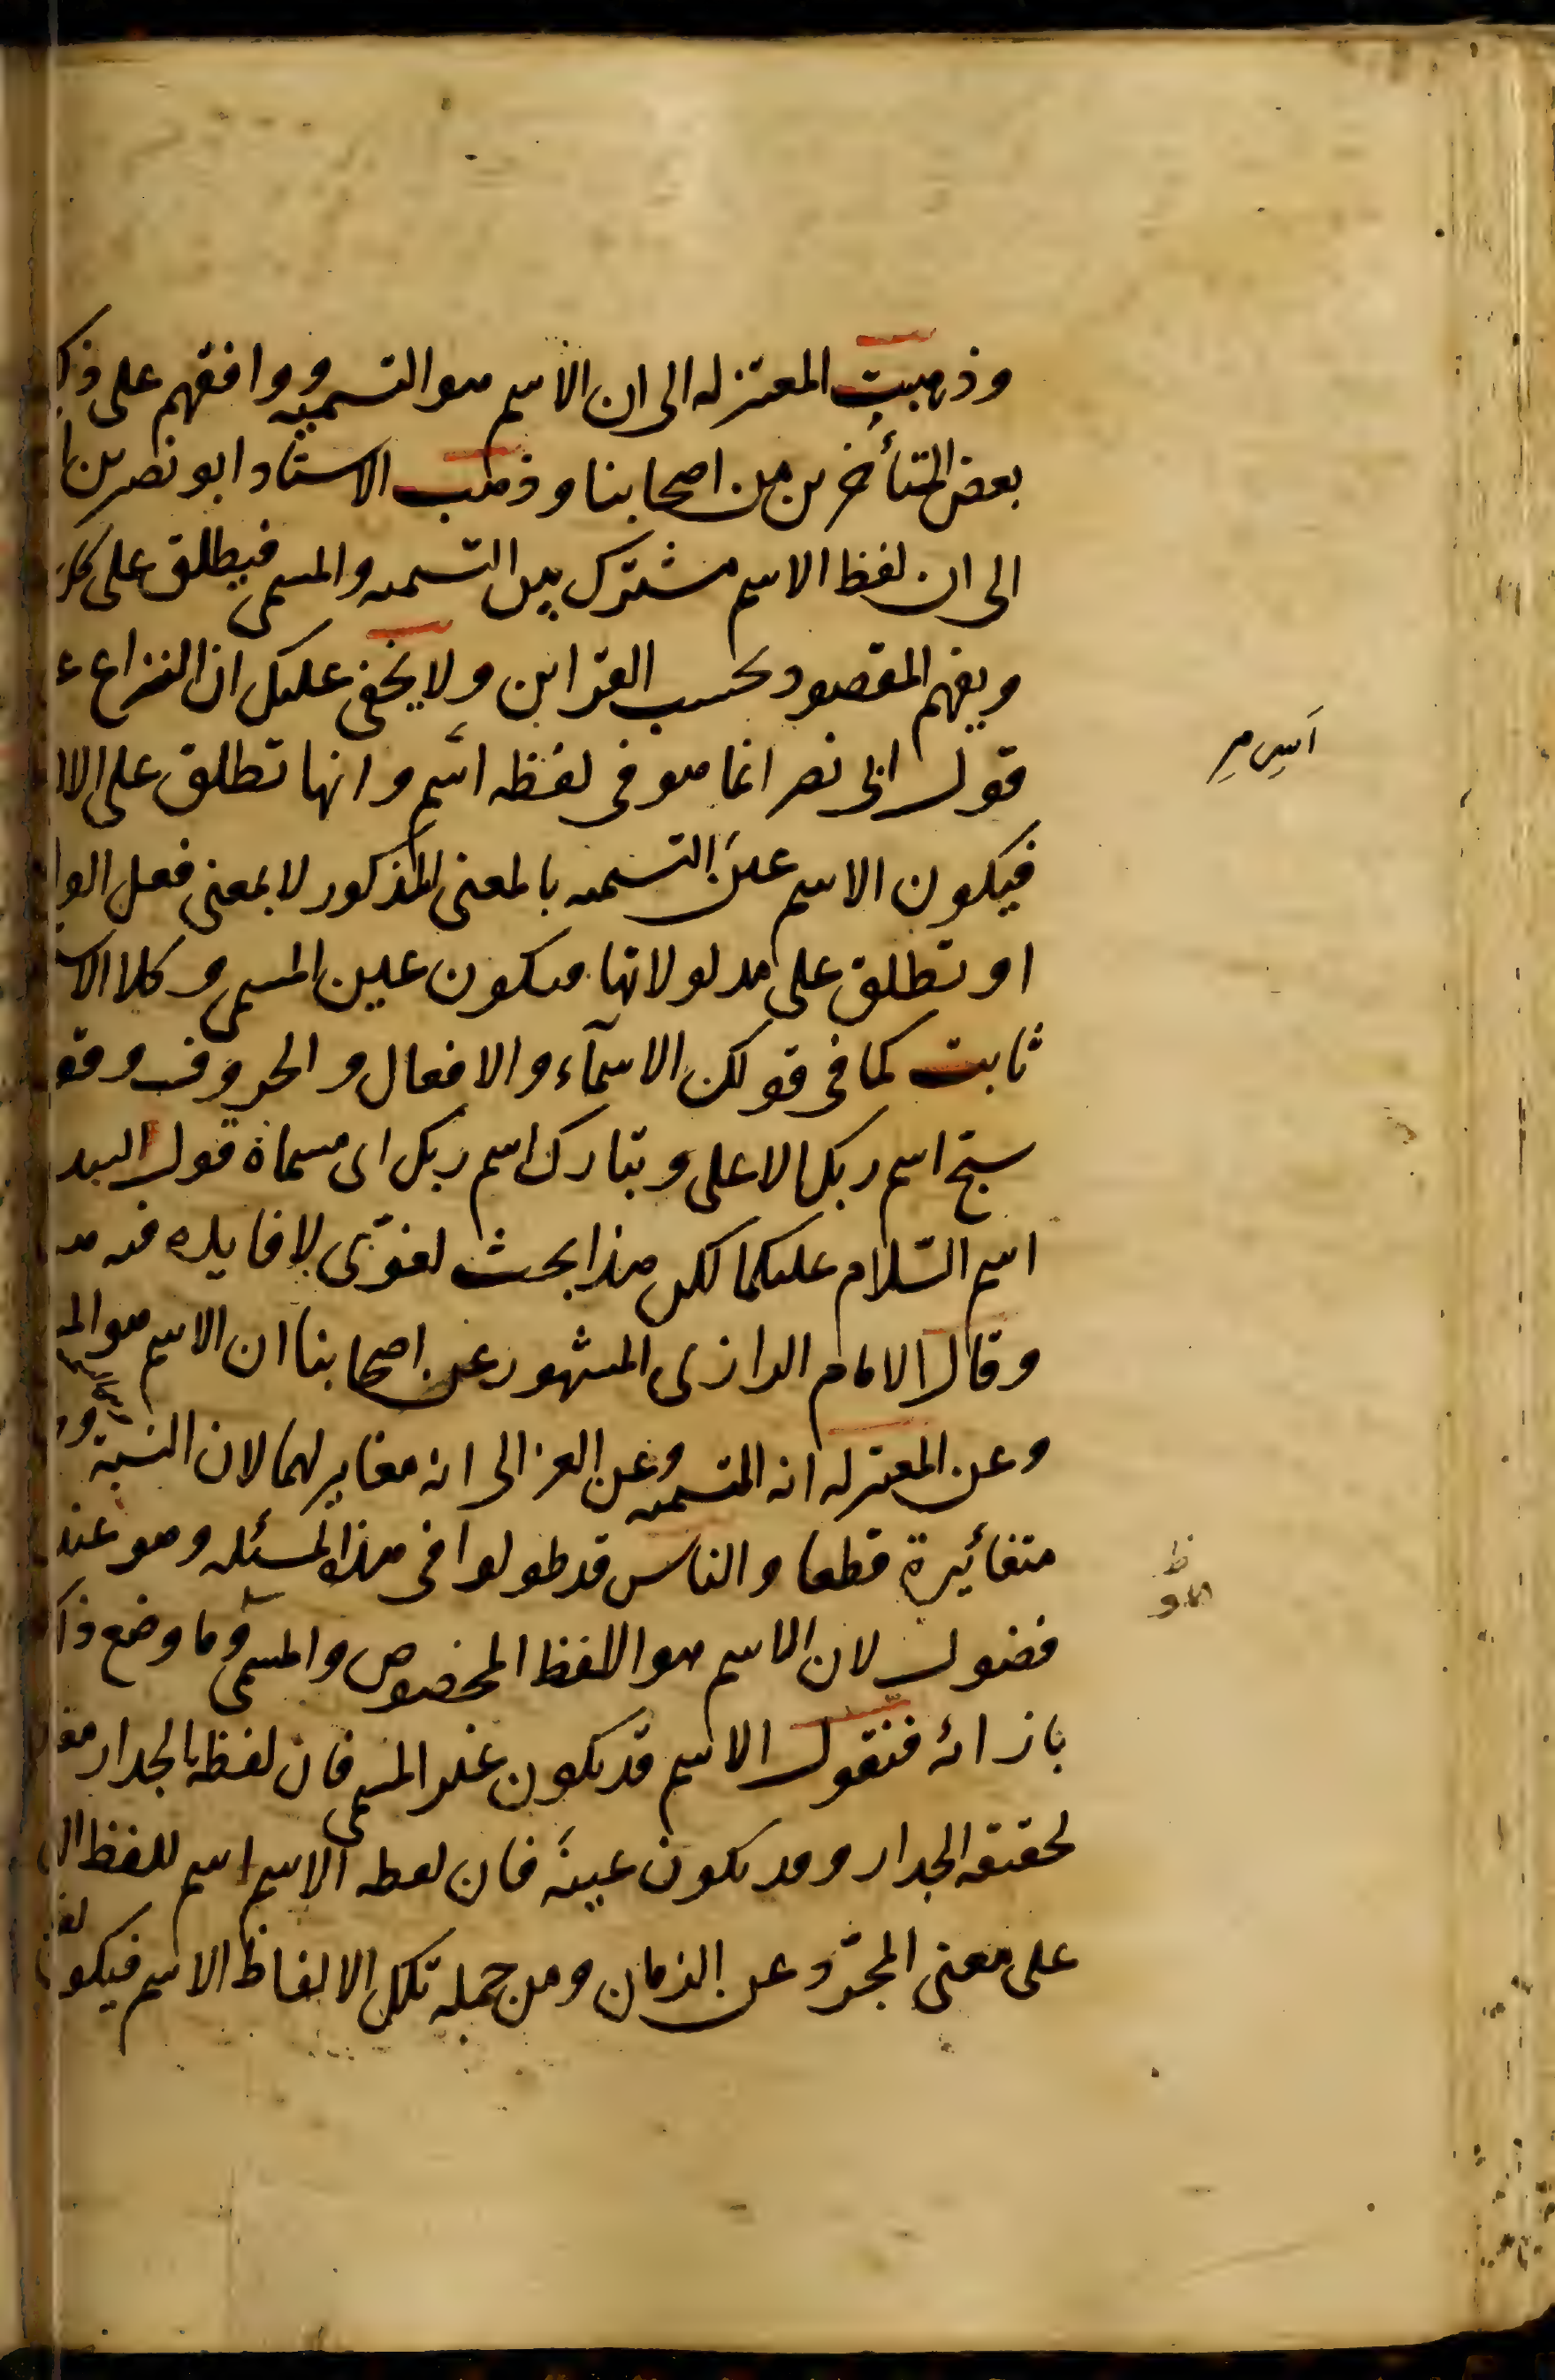 وذهبت المعتزله الى ان الاسم هو التسميه ووافقهم على ذ
بعض المتأخرين من اصحابنا وذهب الاستاد ابو نصر بن ا
الى ان لفظ الاسم مشترك بين التسمه والمسمى فيطلق على كل
ويفهم المقصود بحسب القراين ولا يخفى عليك ان النزاع ع
قول ابى نصر انما هو فى لفظه اسم وانها تطلق على الا
ا س م
فيكون الاسم عين التسمه بالمعنى المذكور لا بمعنى فعل الوا
او تطلق على مدلولاتها فيكون عين المسمى وكلا الا
ثابت كما فى قولك الاسمآء والافعال والحروف وقو
سبح اسم ربك الاعلى وتبارك اسم ربك اى مسماه قول لبيد
اسم السّلام عليكما لكن هذا بحث لغوىّ لا فايده فيه
وقال الامام الرازى المشهور عن اصحابنا ان الاسم هو الم
وعن المعتزله انه التسميه وعن الغزالى انه مغاير لهما لان النسبة و
متغائيرة قطعا والناس قد طولوا فى هذا المسئله وهو عند
فضول لان الاسم هو اللفظ المخصوص والمسمى وما وضع ذ
بازائه فنقول الاسم قد يكون غير المسمى فان لفظه الجدار مغا
لحقيقه الجدار وقد يكون عينه فان لفظه الاسم اسم للفظ ال
على معنى المجرّد عن الزمان ومن جمله تلك الالفاظ الاسم فيكون